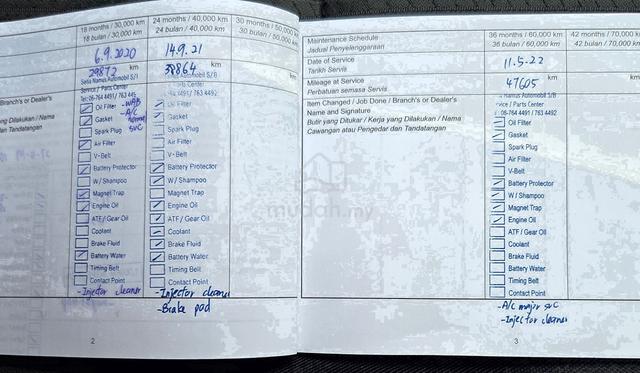 18 months / 30,000 km
18 bulan / 30,000 km
24 months / 40,000 km
24 bulan / 40,000 km
30 months / 50,000 km
30 bulan / 50,000 km
6.9.2020
14.9.21
29872 km
38864 km
km
Setia Namus Automobil S/B
Service / Parts Center
Tel:06-764 4491 / 763 445
Branch's or Dealer's
dan Tandatangan
Oil Filter
- A/C
Gasket
Spark Plug
SVC
Air Filter
V-Belt
Battery Protector
W / Shampoo
Magnet Trap
Engine Oil
ATF/ Gear Oil
Coolant
Brake Fluid
Battery Water
Timing Belt
Contact Point
- Injector cleaner
Oil Filter
Gasket
Spark Plug
Air Filter
V-Belt
Battery Protector
W / Shampoo
Magnet Trap
Engine Oil
ATF / Gear Oil
Coolant
Brake Fluid
Battery Water
Timing Belt
Contact Point
- Injector cleaner
- Brake pad
2
mudah.my
Maintenance Schedule
Jadual Penyelenggaraan
36 months / 60,000 km
36 bulan / 60,000 km
42 months / 70,000
42 bulan / 70,000
Date of Service
Tarikh Servis
11.5.22
Mileage at Service
Perbatuan semasa Servis
47605 km
Item Changed / Job Done / Branch's or Dealer's
Name and Signature
Butir yang Ditukar / Kerja yang Dilakukan / Nama
Cawangan atau Pengedar dan Tandatangan
Namus Automobil S/B
rvice / Parts Center
06-764 4491 / 763 4492
Oil Filter
Gasket
Spark Plug
Air Filter
V-Belt
Battery Protector
W / Shampoo
Magnet Trap
Engine Oil
ATF / Gear Oil
Coolant
Brake Fluid
Battery Water
Timing Belt
Contact Point
- A/C major svc
- Injector cleaner
3